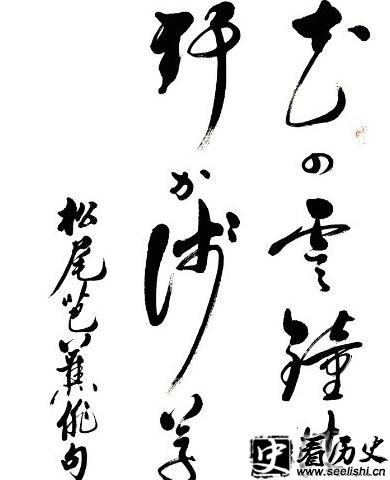 花の雲鐘
野か浅草
松尾芭蕉俳句
史 看历史
www.seelishi.cn